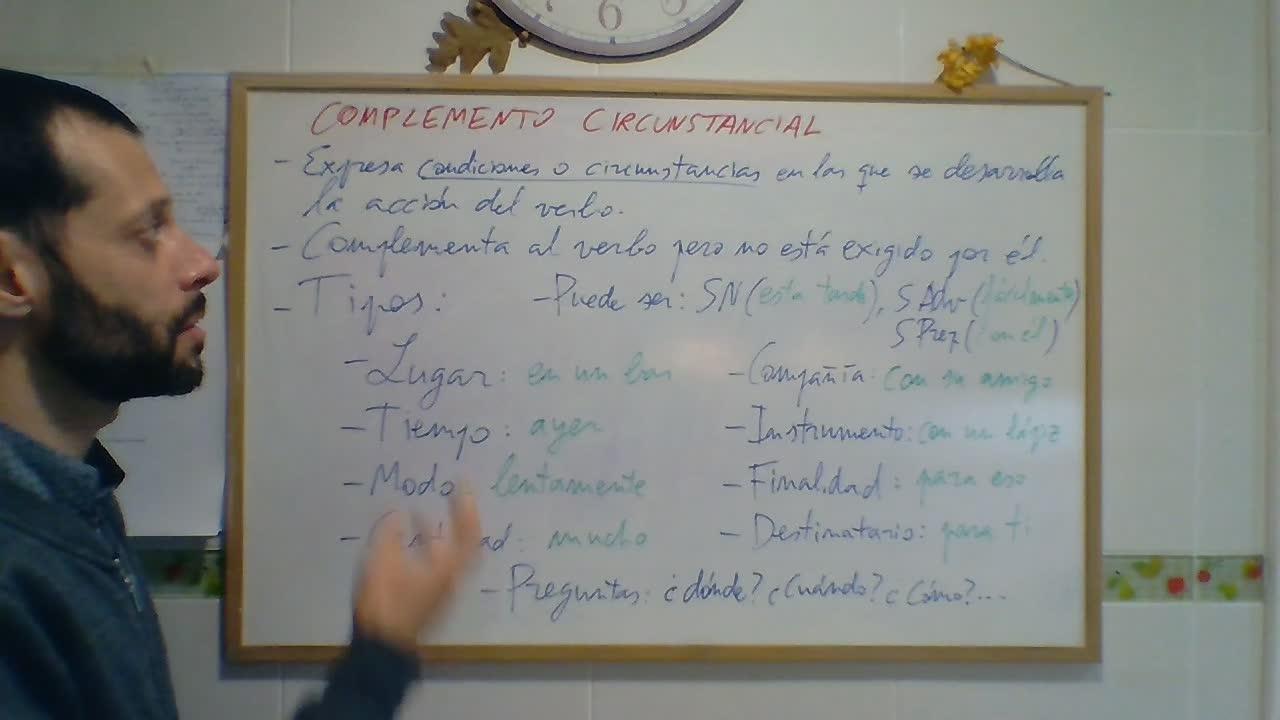 6
COMPLEMENTO CIRCUNSTANCIAL
- Expresa condiciones o circunstancias en las que se desarrolla
la acción del verbo.
- Complementa al verbo pero no está exigido por él.
- Tipos: - Puede ser: SN (esta tarde), S Adv (fácilmente)
S Prep (con él)
- Lugar: en un bar - Compañía: con su amigo
- Tiempo: ayer - Instrumento: con un lápiz
- Modo: lentamente - Finalidad: para eso
- mucho - Destinatario: para ti
- Preguntas: ¿dónde? ¿Cuándo? ¿Cómo?...